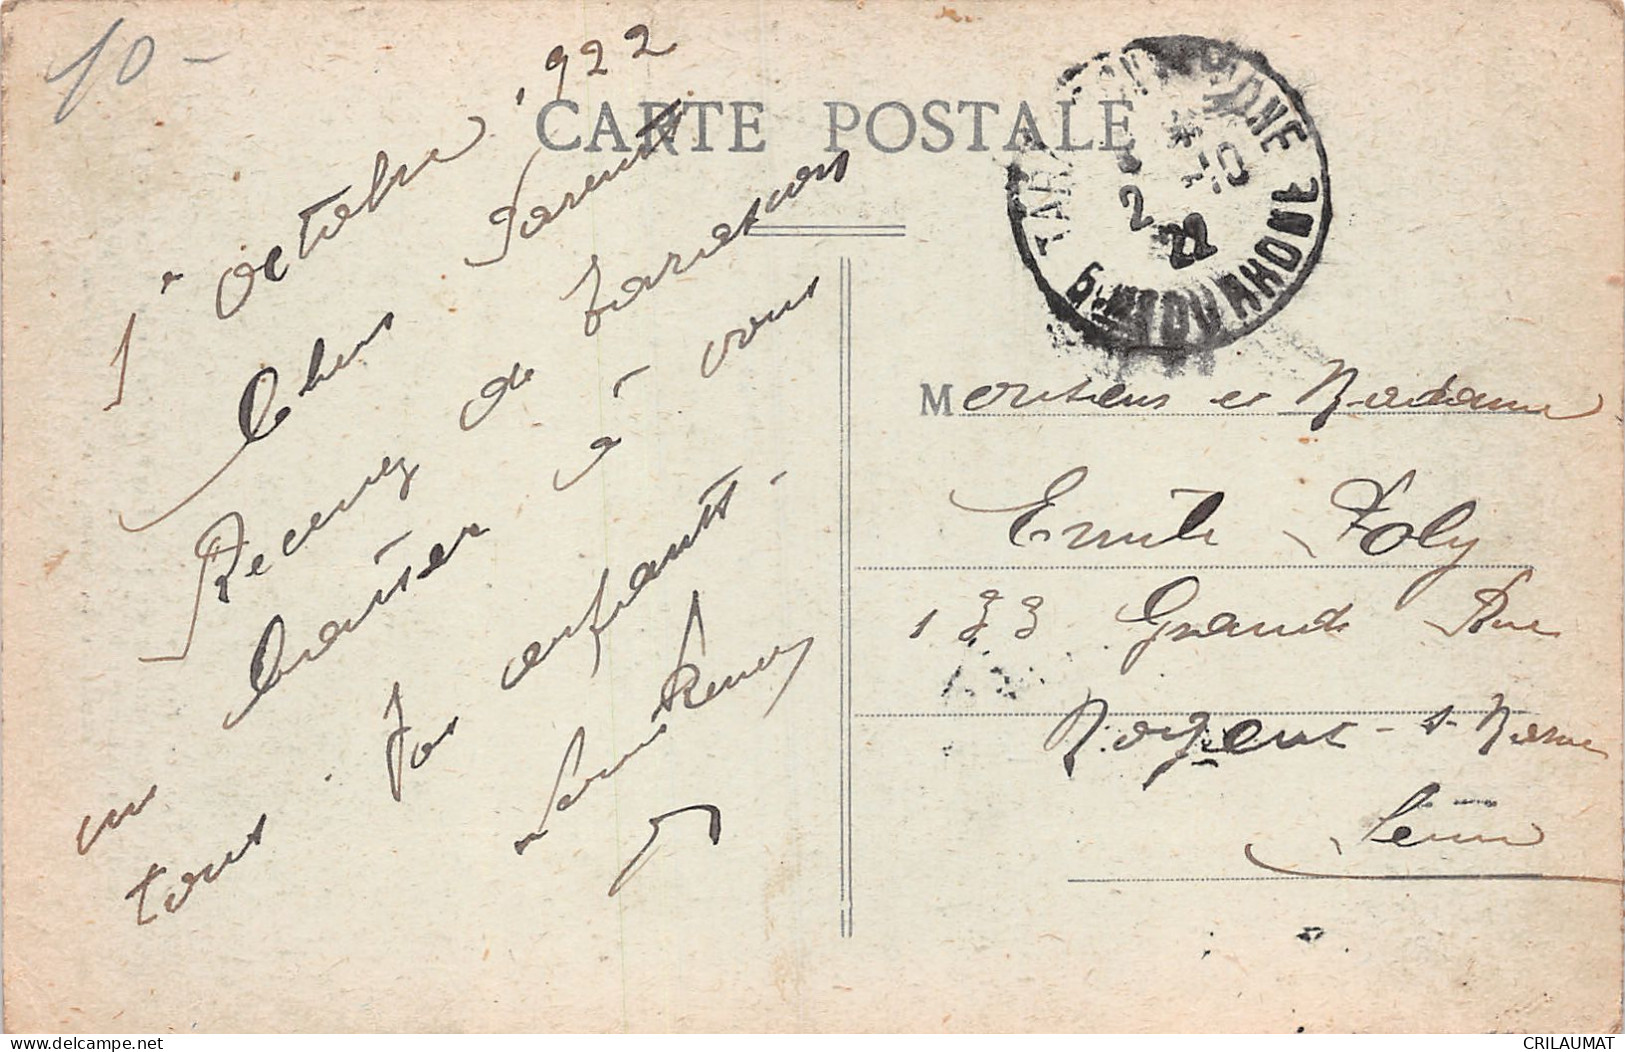 10 -
1er octobre 1922
CARTE POSTALE
Chers Parents
Recevez de Tarascon
un baiser à vous
tous. Vos enfants -
Louis Remy
TARASCON
RHONE
2
10
22
Bes DU RHONE
Monsieur et Madame
Emile Joly
133 Grande Rue
Nogent - s- Marne
Seine
www.delcampe.net
CRILAUMAT